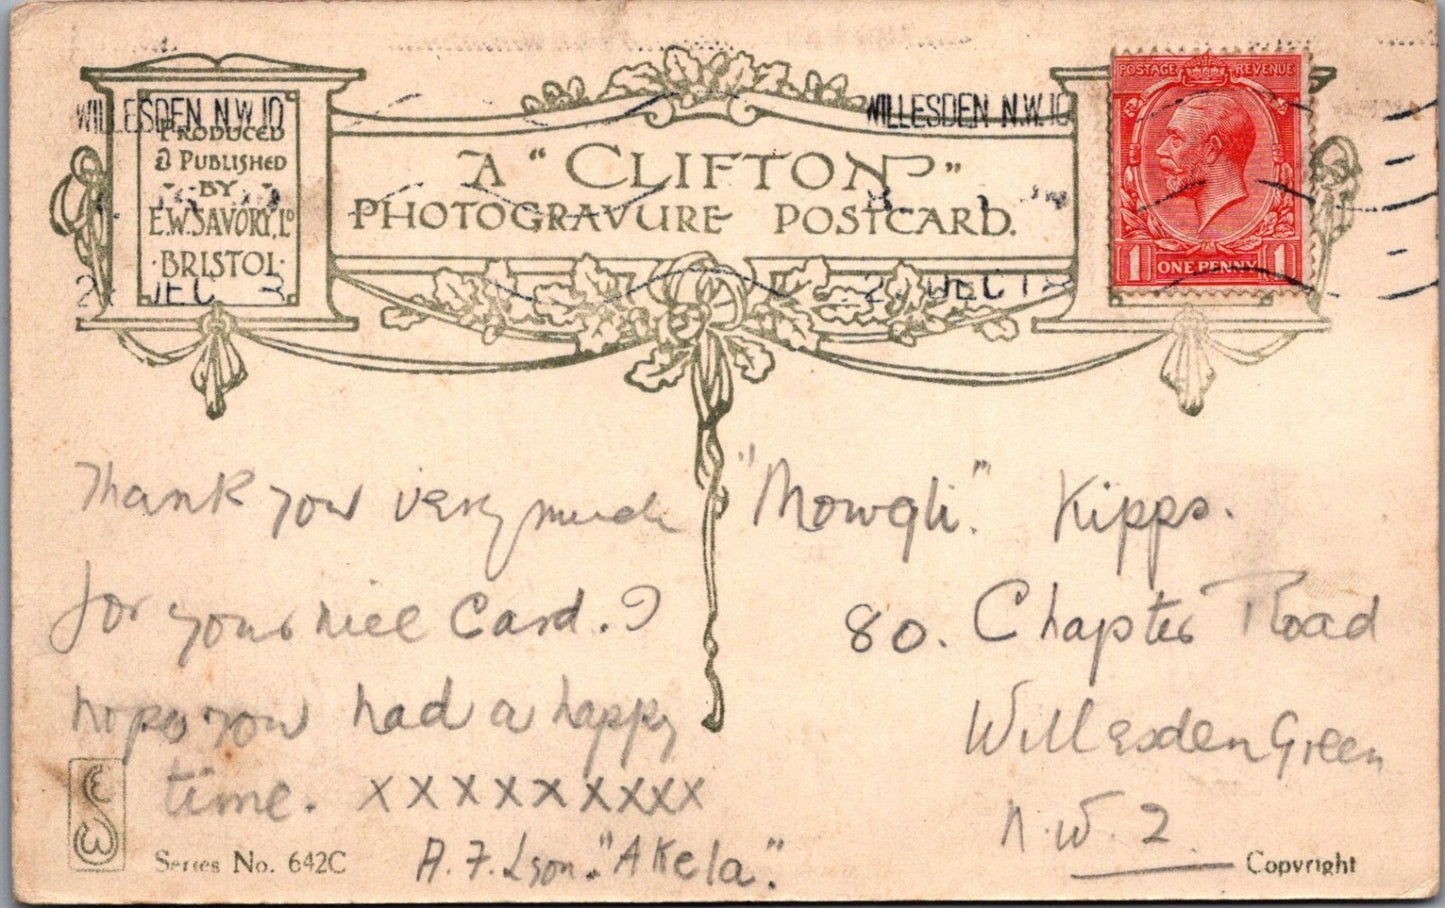 WILLESDEN N.W.10
WILLESDEN N.W.10
PRODUCED
& PUBLISHED
BY
E.W. SAVORY, LD
BRISTOL
A "CLIFTON"
PHOTOGRAVURE POSTCARD.
DEC
DEC 18
POSTAGE REVENUE
1 ONE PENNY 1
Thank you very much
for your nice Card. I
hope you had a happy
time. XXXXXXXXX
"Akela".
"Mowgli". Kipps.
80. Chapter Road
Willesden Green
N.W. 2
Series No. 642C
Copyright